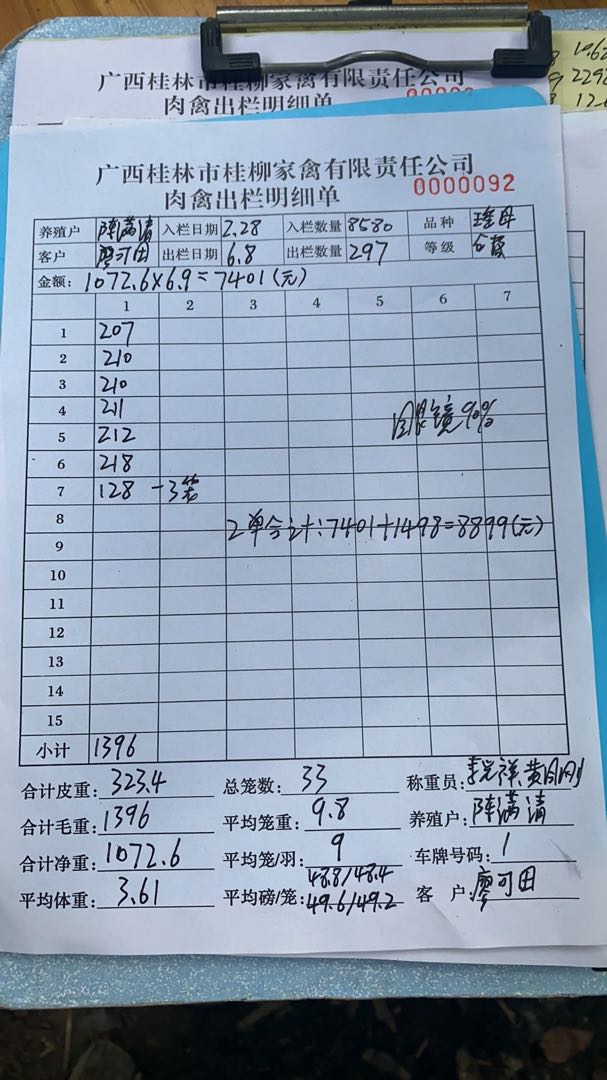 广西桂林市桂柳家禽有限责任公司
肉禽出栏明细单
1962
2298
广西桂林市桂柳家禽有限责任公司
肉禽出栏明细单 0000092
养殖户 陈满清 入栏日期 2.28 入栏数量 8580 品种 瑶母
客户 廖可田 出栏日期 6.8 出栏数量 297 等级
金额: 1072.6×6.9=7401(元)
1 2 3 4 5 6 7
1 207
2 210
3 210
4 211
5 212
眼镜90%
6 218
7 128 -3笼
8
2单合计:7401+1498=8899(元)
9
10
11
12
13
14
15
小计 1396
合计皮重: 323.4 总笼数: 33 称重员:
合计毛重: 1396 平均笼重: 9.8 养殖户: 陈满清
合计净重: 1072.6 平均笼/羽: 9 车牌号码: 1
平均体重: 3.61 平均磅/笼: 48.8/48.4 49.6/49.2 客户: 廖可田